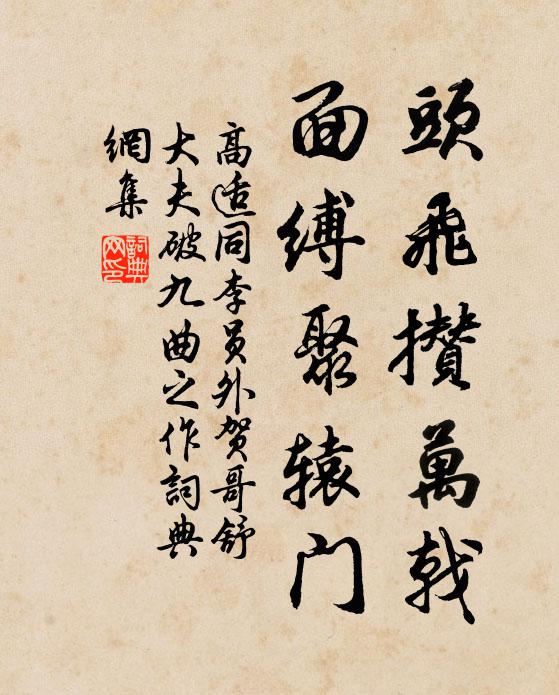 頭飛攢萬戟
面縛聚辕门
高适同李员外贺哥舒
大夫破九曲之作詞典
網集
詞典
网印